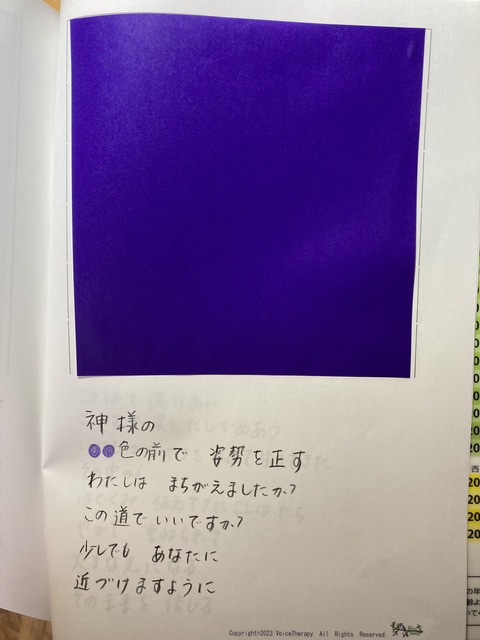 神様の
色の前で 姿勢を正す
わたしは まちがえましたか?
この道でいいですか?
少しでも あなたに
近づけますように
Copyright©2023 VoiceTherapy All Rights Reserved
西
20
20
20
20
の年